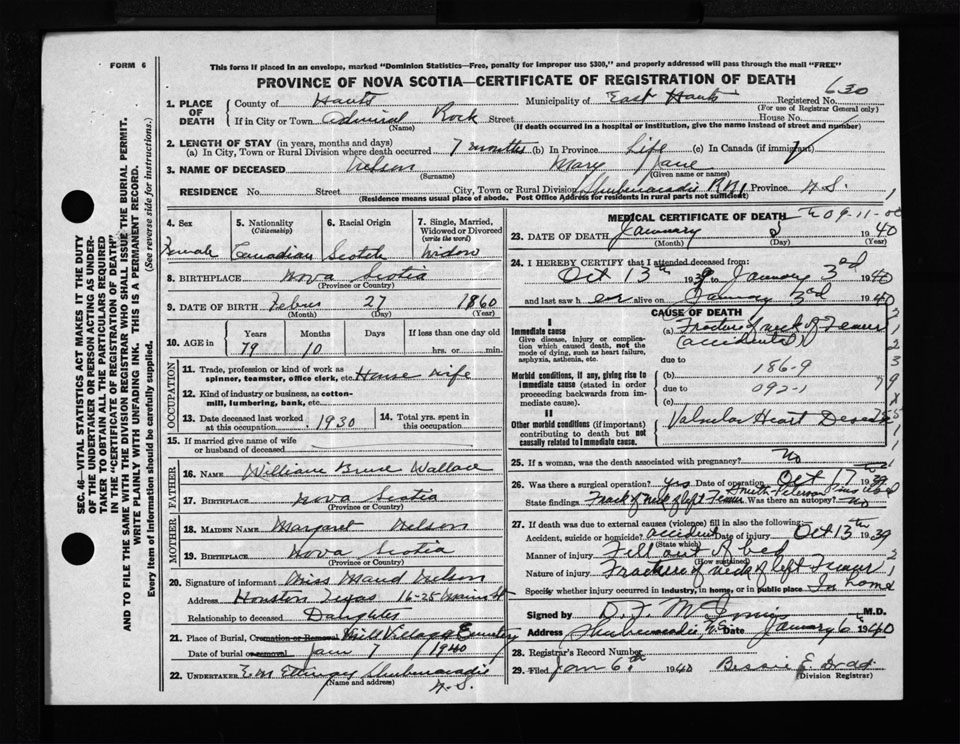 FORM 6
This form if placed in an envelope, marked "Dominion Statistics—Free, penalty for improper use $300," and properly addressed will pass through the mail "FREE"
PROVINCE OF NOVA SCOTIA—CERTIFICATE OF REGISTRATION OF DEATH
630
1. PLACE OF DEATH
County of Hants Municipality of East Hants Registered No.
(For use of Registrar General only)
If in City or Town Admiral Rock Street House No.
(Name) (If death occurred in a hospital or institution, give the name instead of street and number)
2. LENGTH OF STAY (in years, months and days)
(a) In City, Town or Rural Division where death occurred 7 months (b) In Province Life (c) In Canada (if immigrant)
3. NAME OF DECEASED Nelson Mary Jane
(Surname) (Given name or names)
RESIDENCE No. Street City, Town or Rural Division Shubenacadie RR1 Province N.S.
(Residence means usual place of abode. Post Office Address for residents in rural parts not sufficient)
4. Sex Female
5. Nationality (Citizenship) Canadian
6. Racial Origin Scotch
7. Single, Married, Widowed or Divorced (write the word) Widow
8. BIRTHPLACE Nova Scotia
(Province or Country)
9. DATE OF BIRTH 27 1860
(Month) (Day) (Year)
10. AGE in Years Months Days If less than one day old
79 10 hrs. or min.
OCCUPATION
11. Trade, profession or kind of work as spinner, teamster, office clerk, etc. House wife
12. Kind of industry or business, as cotton-mill, lumbering, bank, etc.
13. Date deceased last worked at this occupation 1930
14. Total yrs. spent in this occupation
15. If married give name of wife or husband of deceased
FATHER
16. NAME William Bruce Wallace
17. BIRTHPLACE Nova Scotia
(Province or Country)
MOTHER
18. MAIDEN NAME Margaret Nelson
19. BIRTHPLACE Nova Scotia
(Province or Country)
20. Signature of informant Miss Maud Nelson
Address Houston Texas 16-25 Main St
Relationship to deceased Daughter
21. Place of Burial, Cremation or Removal Mill Village Cemetery
Date of burial or removal Jan 7 1940
22. UNDERTAKER E M Shubenacadie
(Name and address) N.S.
MEDICAL CERTIFICATE OF DEATH
09-11-00
23. DATE OF DEATH January 1940
(Month) (Day) (Year)
24. I HEREBY CERTIFY that I attended deceased from:
Oct 13th 1939 to January 3rd 1940
and last saw her alive on January 3rd 1940
CAUSE OF DEATH
I
Immediate cause
Give disease, injury or complication which caused death, not the mode of dying, such as heart failure, asphyxia, asthenia, etc.
(a) Fracture of neck of Femur
(accidental)
due to
Morbid conditions, if any, giving rise to immediate cause (stated in order proceeding backwards from immediate cause).
(b) 186-9
due to 092-1
(c)
II
Other morbid conditions (if important) contributing to death but not causally related to immediate cause.
Valvular Heart Desease
25. If a woman, was the death associated with pregnancy? No
26. Was there a surgical operation? yes Date of operation Oct 17th 1939
State findings Frack of neck of left Femur Smith Peterson Was there an autopsy? No
27. If death was due to external causes (violence) fill in also the following:
Accident, suicide or homicide? accident Date of injury Oct 13th 1939
(State which)
Manner of injury Fell out of bed
(How sustained)
Nature of injury Fracture of neck of left Femur
Specify whether injury occurred in industry, in home, or in public place In home
Signed by M.D.
Address Shubenacadie N.S. Date January 6th 1940
28. Registrar's Record Number
29. Filed Jan 6th 1940 Bessie E.
(Division Registrar)
SEC. 46—VITAL STATISTICS ACT MAKES IT THE DUTY
OF THE UNDERTAKER OR PERSON ACTING AS UNDER-
TAKER TO OBTAIN ALL THE PARTICULARS REQUIRED
IN THE "CERTIFICATE OF REGISTRATION OF DEATH"
AND TO FILE THE SAME WITH THE DIVISION REGISTRAR WHO SHALL ISSUE THE BURIAL PERMIT.
WRITE PLAINLY WITH UNFADING INK. THIS IS A PERMANENT RECORD.
Every item of Information should be carefully supplied. (See reverse side for instructions.)